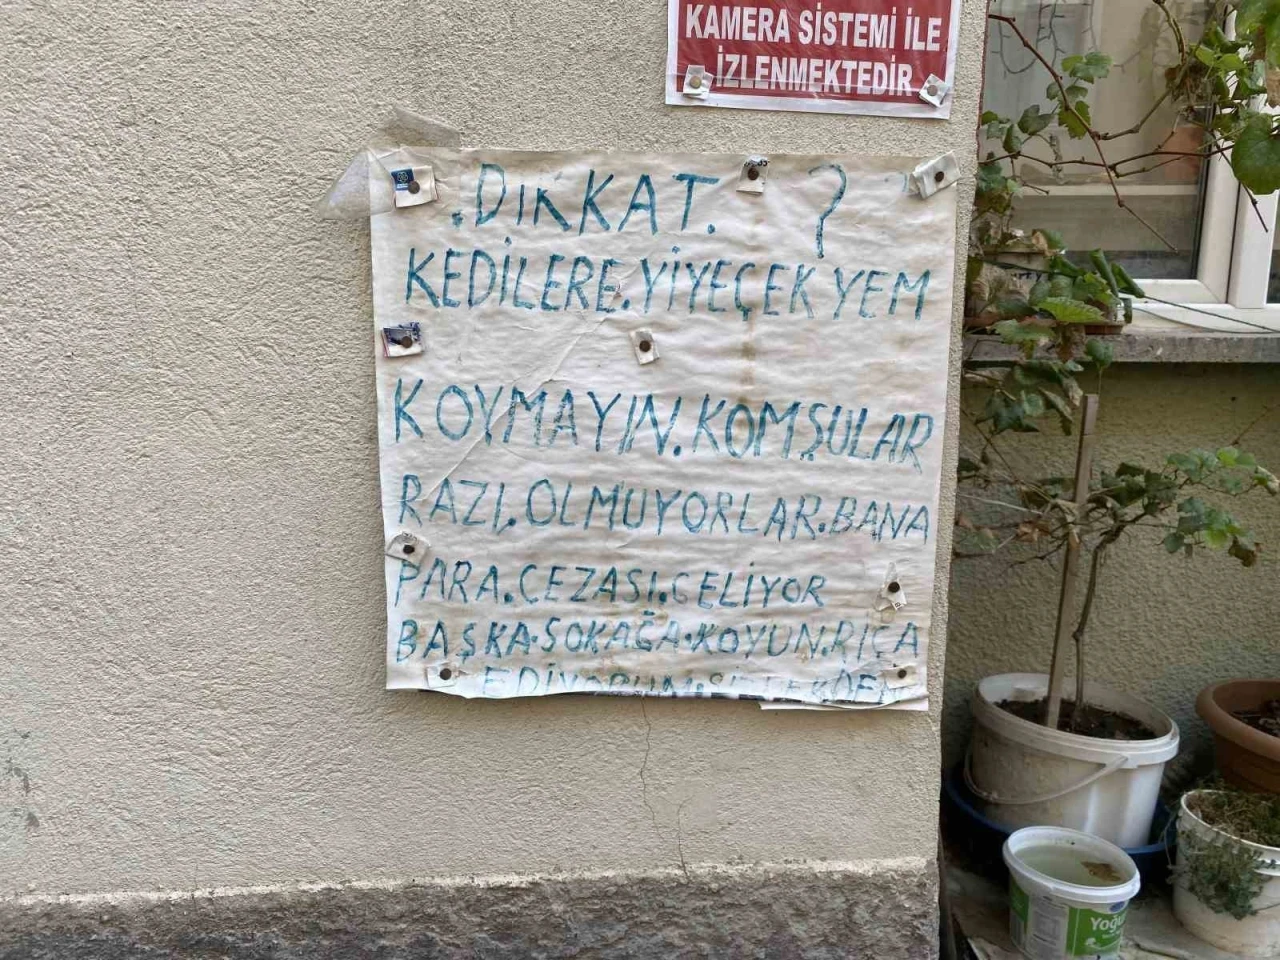 KAMERA SİSTEMİ İLE
İZLENMEKTEDİR
.DİKKAT. ?
KEDİLERE.YİYEÇEK YEM
KOYMAYIN.KOMŞULAR
RAZI.OLMUYORLAR.BANA
PARA.CEZASI.GELİYOR
BAŞKA.SOKAĞA.KOYUN.RİCA
EDİYORUM.
Yoğu